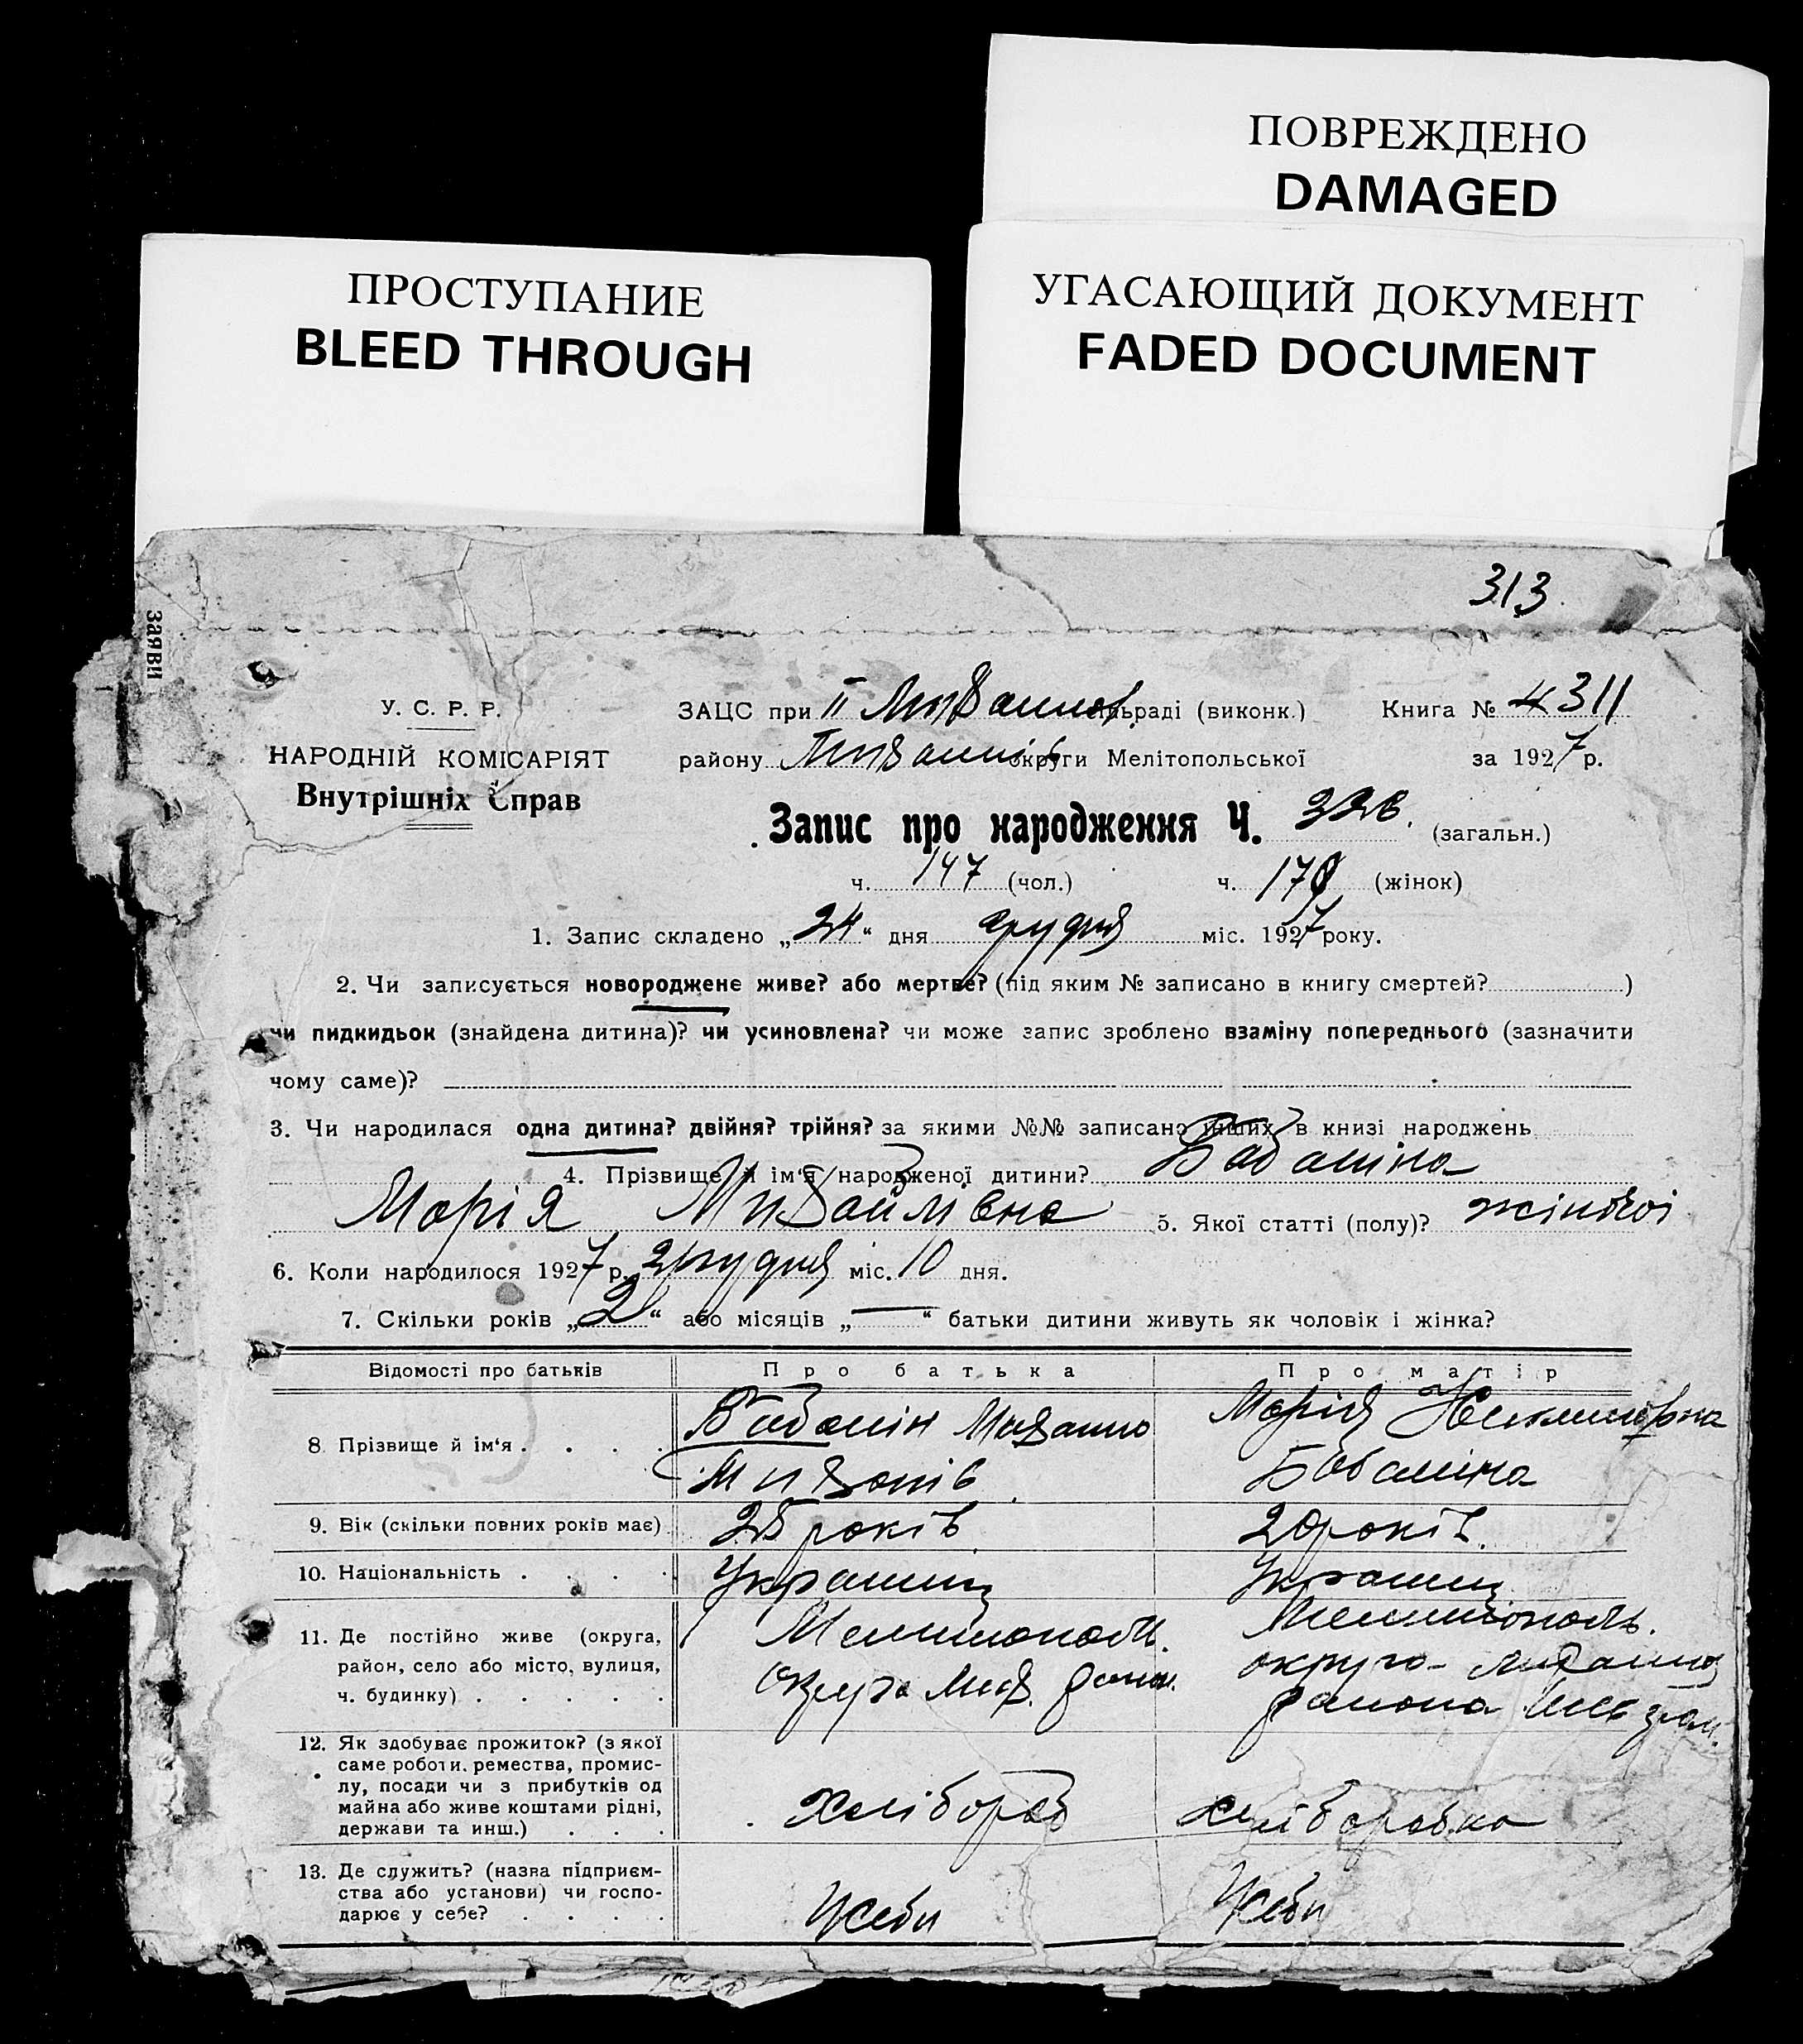 ПОВРЕЖДЕНО
DAMAGED
ПРОСТУПАНИЕ
BLEED THROUGH
УГАСАЮЩИЙ ДОКУМЕНТ
FADED DOCUMENT
313
заяви
У. С. Р. Р.
НАРОДНІЙ КОМІСАРІЯТ
Внутрішніх Справ
ЗАЦС при II сільраді (виконк.)
району округи Мелітопольської
Книга № 311
за 1927 р.
Запис про народження Ч. 326. (загальн.)
ч. 147 (чол.) ч. 179 (жінок)
1. Запис складено „24“ дня грудня міс. 1927 року.
2. Чи записується новороджене живе? або мертве? (під яким № записано в книгу смертей? )
чи пидкидьок (знайдена дитина)? чи усиновлена? чи може запис зроблено взаміну попереднього (зазначити
чому саме)?
3. Чи народилася одна дитина? двійня? трійня? за якими №№ записано інших в книзі народжень
4. Прізвище й ім'я народженої дитини? Бабаніна
Марія Михайлівна 5. Якої статті (полу)? жіночої
6. Коли народилося 1927 р. грудня міс. 10 дня.
7. Скільки років „2“ або місяців „—“ батьки дитини живуть як чоловік і жінка?
Відомості про батьків Про батька Про матір
8. Прізвище й ім'я . . . . Бабанін Михайло Марія
Бабаніна
9. Вік (скільки повних років має) 25 років 20 років
10. Національність . . . . Українц Українц
11. Де постійно живе (округа,
район, село або місто, вулиця,
ч. будинку) . . . . . Мелитополь. округа Мих. район. Мелитополь. округа
района
12. Як здобуває прожиток? (з якої
саме роботи, ремества, промис-
лу, посади чи з прибутків од
майна або живе коштами рідні,
держави та инш.) . . . хлібороб хлібороб.ка
13. Де служить? (назва підприєм-
ства або установи) чи госпо-
дарює у себе? . . . . У себи У себи